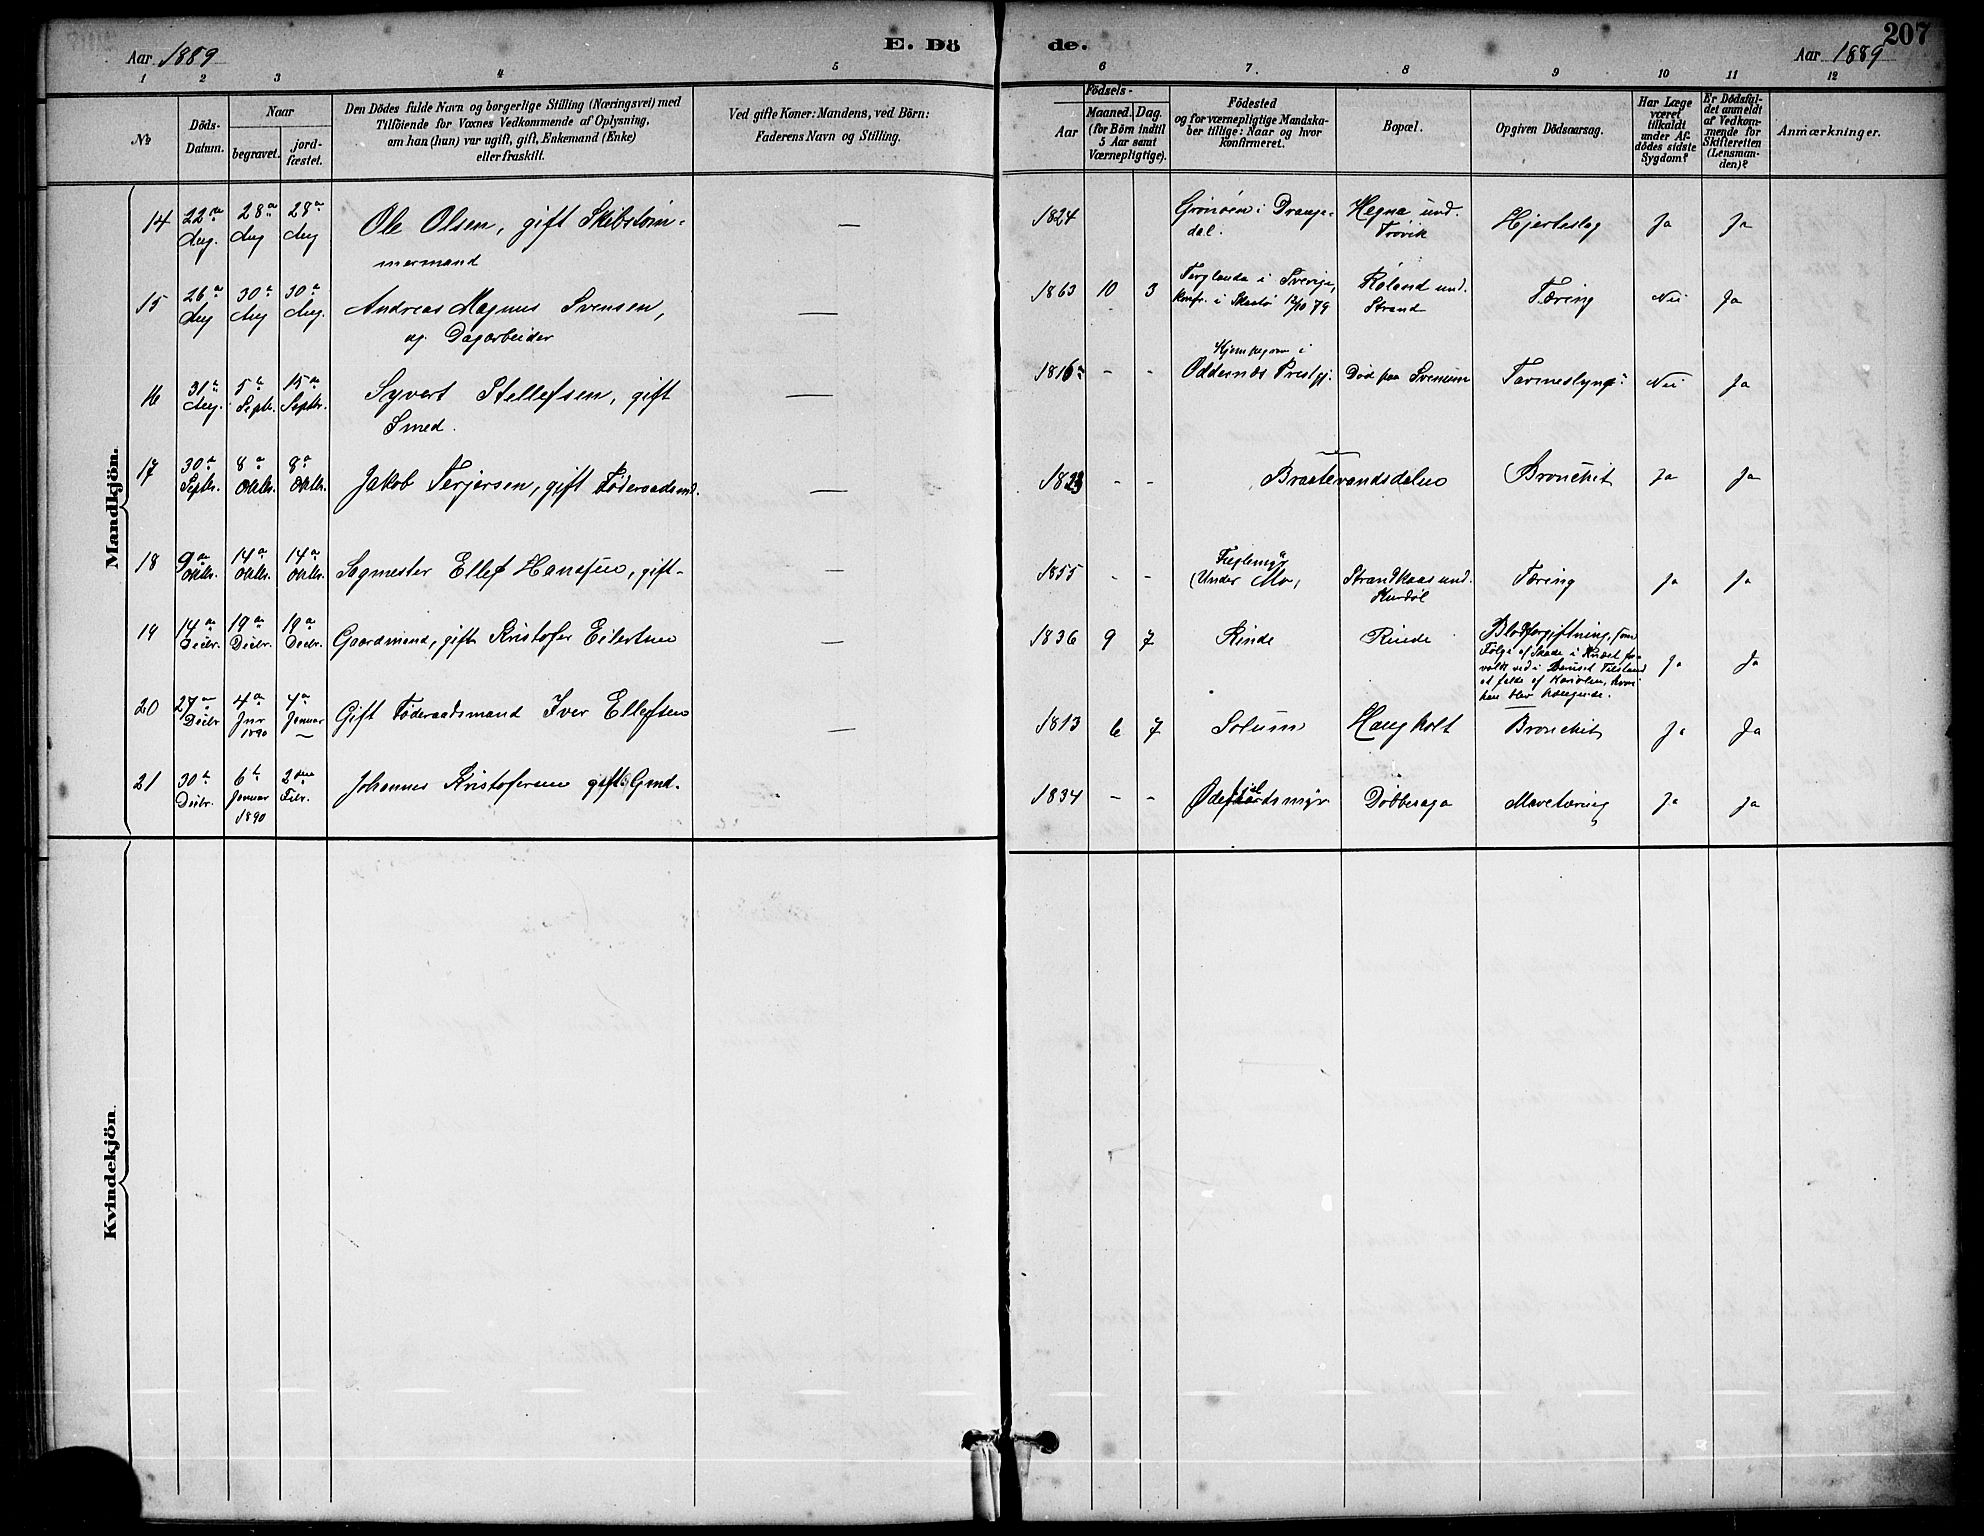 Aar 1889
E. Dö
de.
Aar 1889
207
1
2
3
4
5
6
7
8
9
10
11
12
No
Döds-
Datum.
Naar
begravet.
jord-
fæstet.
Den Dödes fulde Navn og borgerlige Stilling (Næringsvei) med
Tilföiende for Voxnes Vedkommende af Oplysning,
om han (hun) var ugift, gift, Enkemand (Enke)
eller fraskilt.
Ved gifte Koner: Mandens, ved Börn:
Faderens Navn og Stilling.
Födsels-
Aar
Maaned. Dag.
(for Börn indtil
5 Aar samt
Værnepligtige).
Födested
og for værnepligtige Mandska-
ber tillige: Naar og hvor
konfirmeret.
Bopæl.
Opgiven Dödsaarsag.
Har Læge
været
tilkaldt
under Af-
dödes sidste
Sygdom?
Er Dödsfal-
det anmeldt
af Vedkom-
mende for
Skifteretten
(Lensman-
den)?
Anmærkninger.
Mandkjön.
14
22de Aug.
28de Aug
28de Aug
Ole Olsen, gift Skibstöm-
mermand
—
1824
Grönöen i Drange-
dal.
Hegna und.
Trovik
Hjerteslag
Ja
Ja
15
26de Aug
30de Aug
30de Aug.
Andreas Magnus Svensen,
ug. Dagarbeider
—
1863 10 3
i Sverige,
konf. i Skaatö 12/10 79
Röland und.
Strand
Tæring
Nei
Ja
16
31te Aug.
5te Septr.
15de Septr.
Syvert Stellefsen, gift
Smed.
—
1816 - -
i
Oddernæs Prestgj.
Död paa Svenum
Tarmeslyng
Nei
Ja
17
30te Septr.
8de Oktbr.
8de Oktbr.
Jakob Terjersen, gift Föderaadsmd.
—
- -
Braatevandsdalen
Bronchit
Ja
Ja
18
9de Oktbr.
14de Oktbr.
14de Oktbr.
Sagmester Ellef Hansen, gift-
—
1855 - -
(Under Mo,
Strandkaas und.
Kurdöl
Tæring
Ja
Ja
19
14de Decbr.
19de Decbr.
19de Decbr.
Gaardmand, gifte Kristofer Eilertsen
—
1836 9 7
Rinde
Rinde
Blodforgiftning, som
Fölge af Skade i Knæet for-
voldt ved i
at falde af Kariolen, hvori
han blev hængende.
Ja
Ja
20
27de Decbr
4de Jnr 1890
4de Januar
Gift Föderaadsmand Iver Ellefsen
—
1813 6 7
Solum
Haugholt
Bronchit
Ja
Ja
21
30te Decbr.
6te Januar 1890
2den Febr.
Johannes Kristofersen gift Gmd.
1834 - -
Döbbesaga
Mavetæring
Ja
Ja
Kvindekjön.